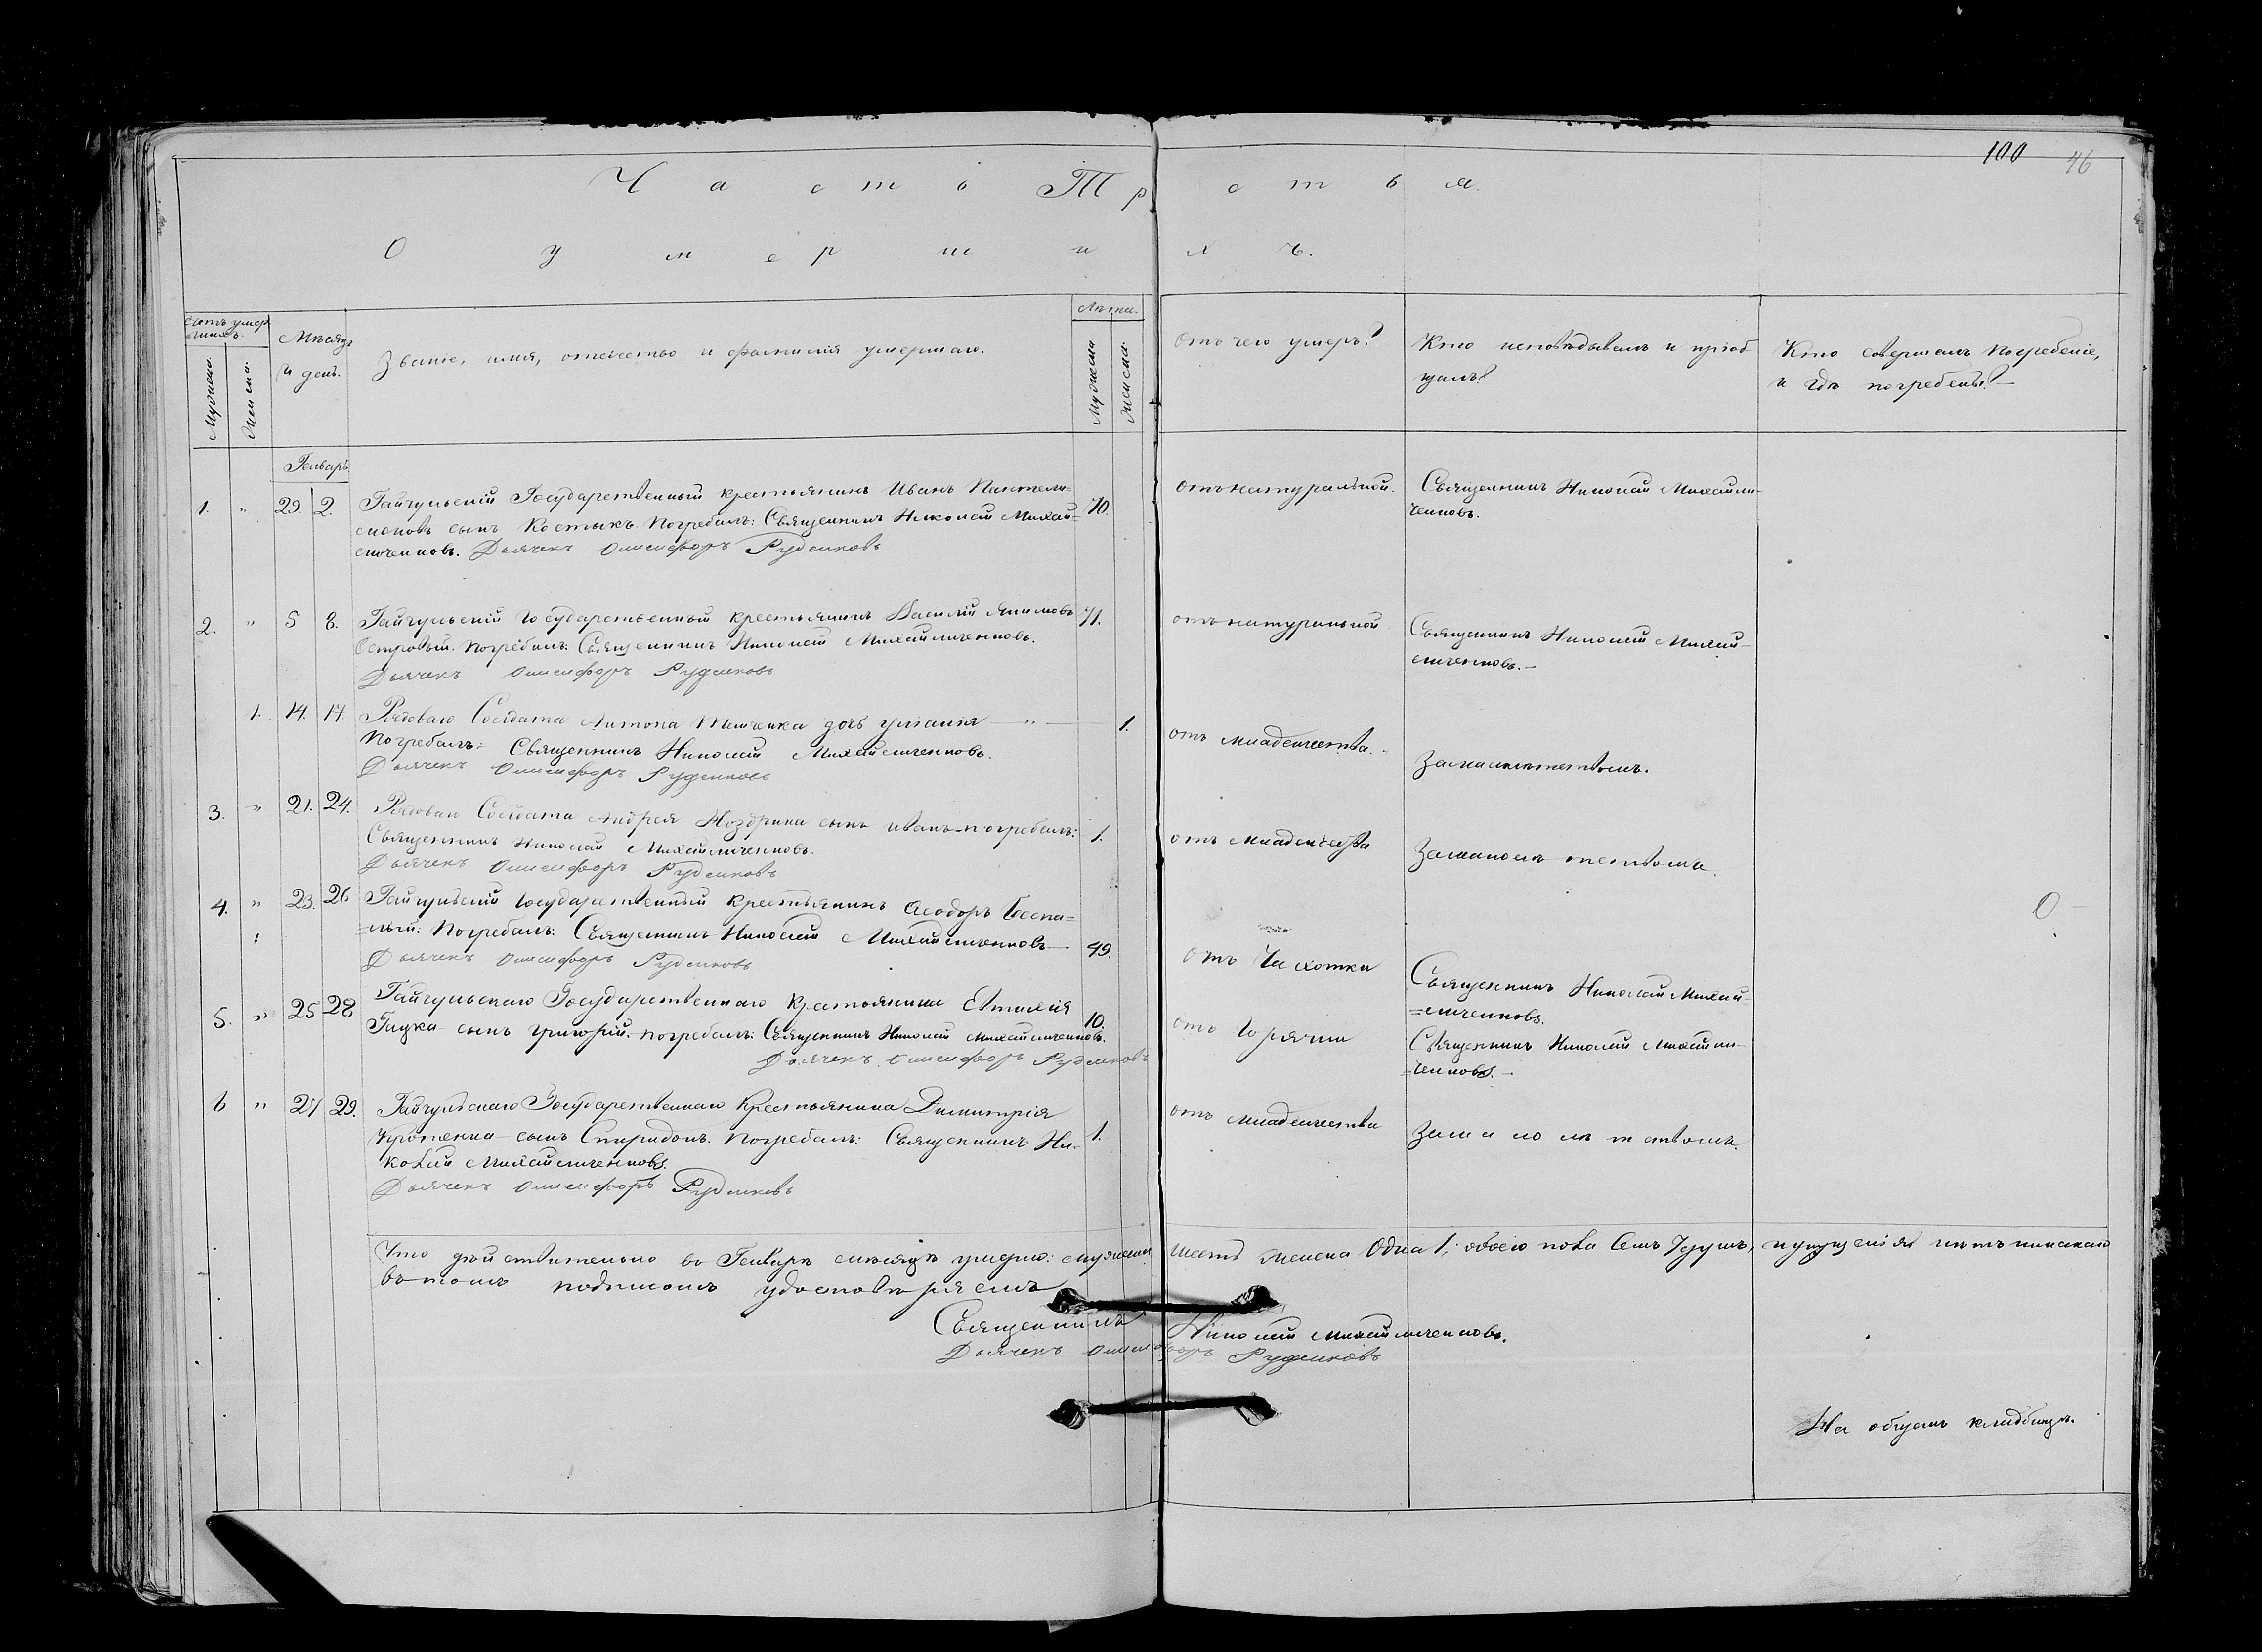 100 46
Часть Третья.
О умершихъ.
Счетъ умершихъ.
Мужеска.
Женска.
Мѣсяцъ и день.
Званіе, имя, отечество и фамилія умершаго.
Лѣта.
Мужеска.
Женска.
Отъ чего умеръ?
Кто исповѣдывалъ и пріобщалъ?
Кто совершалъ погребеніе,
и гдѣ погребены?
Генварь
1. " 29 2. Гайчульскій Государственный крестьянинъ Иванъ Пантели= 70. отъ натуральной. Священникъ Николай Михайли-
моновъ сынъ Костыкъ. Погребалъ: Священникъ Николай Михай= ченковъ.
личенковъ. Дьячекъ Онисифоръ Руденковъ
2. " 5 8. Гайчульскій государственный крестьянинъ Василій Якимовъ 71. отъ натуральной Священникъ Николай Михай-
Островый. Погребалъ: Священникъ Николай Михайличенковъ. личенковъ.-
Дьячекъ Онисифоръ Руденковъ
1. 14. 17. Рядоваго Солдата Антона дочь Уліанія " 1. отъ младенчества.
Погребалъ: Священникъ Николай Михайличенковъ. За малолѣтствомъ.
Дьячекъ Онисифоръ Руденковъ
3. " 21. 24. Рядоваго Солдата Андрея Ноздрина сынъ Иванъ погребалъ: 1. отъ младенчества За малолѣтствомъ.
Священникъ Николай Михайличенковъ.
Дьячекъ Онисифоръ Руденковъ
4. " 23. 26 Гайчульскій государственный крестьянинъ Ѳеодоръ Беспа=
лый: Погребалъ: Священникъ Николай Михайличенковъ 49. отъ Чахотки Священникъ Николай Михай-
Дьячекъ Онисифоръ Руденковъ =личенковъ.
5. " 25 28 Гайчульскаго Государственнаго крестьянина Евтихія 10. отъ горячки Священникъ Николай Михайли-
сынъ Григорій: погребалъ: Священникъ Николай Михайличенковъ. =ченковъ.-
Дьячекъ Онисифоръ Руденковъ
6 " 27 29. Гайчульскаго Государственнаго Крестьянина Димитрія 1. отъ младенчества За малолѣтствомъ.
сынъ Спиридонъ. Погребалъ: Священникъ Ни-
колай Михайличенковъ.
Дьячекъ Онисифоръ Руденковъ
Что дѣйствительно въ Генварѣ мѣсяцѣ умерло: мужеска шесть женска Одна 1; обоего пола Семь 7 душъ, пропущенія нѣтъ никакого
въ томъ подписомъ удостовѣряемъ
Священникъ Николай Михайличенковъ.
Дьячекъ Онисифоръ Руденковъ
На общемъ кладбищѣ.